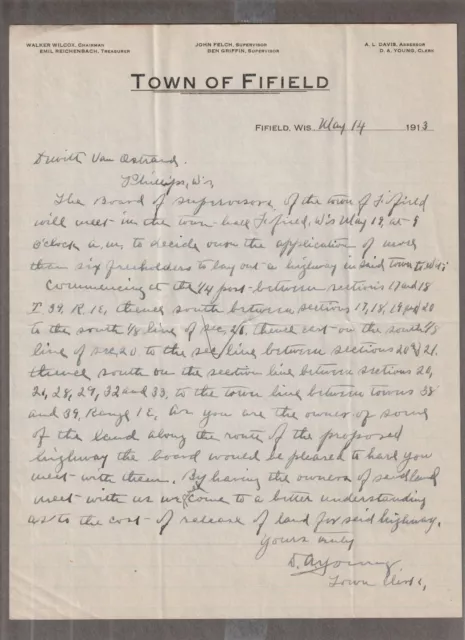 WALKER WILCOX, CHAIRMAN
EMIL REICHENBACH, TREASURER
JOHN FELCH, SUPERVISOR
BEN GRIFFIN, SUPERVISOR
A. L. DAVIS, ASSESSOR
D. A. YOUNG, CLERK
TOWN OF FIFIELD
FIFIELD, WIS. May 14 1913
Dewitt Van Ostrand.
Phillips, Wis
The Board of supervisors of the town of Fifield
will meet in the town hall Fifield, Wis May 19, at 9
o'clock a.m. to decide upon the application of more
than six freeholders to lay out a highway in said town to wit;
Commencing at the 1/4 post between sections 17 and 18
T 39, R. 1E, thence south between sections 17, 18, 19 and 20
to the south 1/8 line of sec, 20, thence east on the south 1/8
line of sec, 20 to the sec line between sections 20 & 21.
thence south on the section line between sections 20,
21, 28, 29, 32 and 33. to the town line between towns 38
and 39, Range 1 E, As you are the owner of some
of the land along the route of the proposed
highway the board would be pleased to have you
meet with them. By having the owners of said land
meet with us we come to a better understanding
as to the cost of release of land for said highway.
Yours truly
D. A Young
Town Clerk,